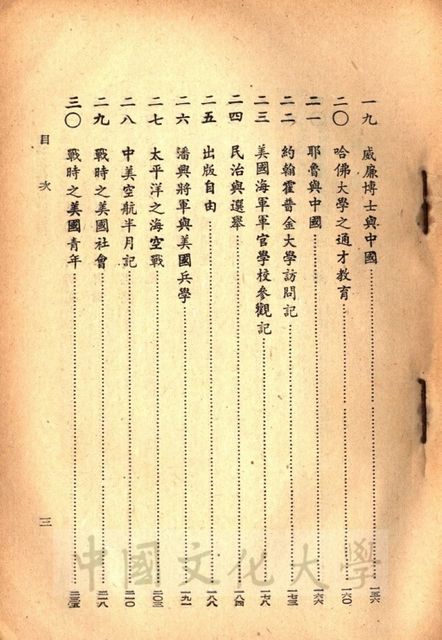 一九　威廉博士與中國……一五六
二〇　哈佛大學之通才教育……一六〇
二一　耶魯與中國……一六六
二二　約翰霍普金大學訪問記……一七三
二三　美國海軍軍官學校參觀記……一七八
二四　民治與選舉……一八四
二五　出版自由……一八八
二六　潘興將軍與美國兵學……一九一
二七　太平洋之海空戰……二〇三
二八　中美空航半月記……二一〇
二九　戰時之美國社會……二一八
三〇　戰時之美國青年……二三五
目次
三
中國文化大學